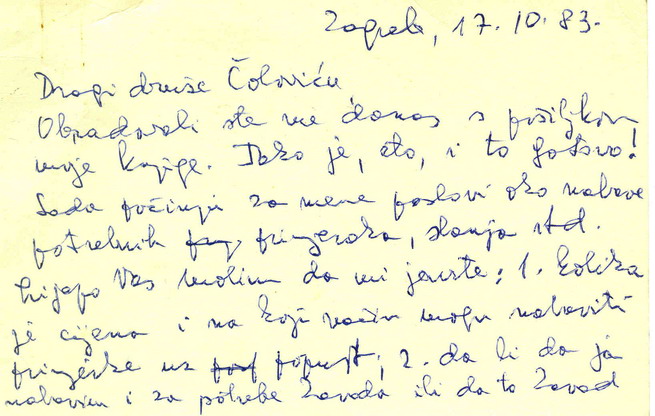 Zagreb, 17. 10. 83.
Dragi druže Čoloviću
Obradovali ste me danas s pošiljkom
moje knjige. Tako je, eto, i to gotovo!
Sada počinju za mene poslovi oko nabave
potrebnih primjeraka, slanja itd.
Vas molim da mi javite: 1. kolika
je cijena i na koji način mogu nabaviti
primjerke uz popust; 2. da li da ja
nabavim i za potrebe Zavoda ili da to Zavod